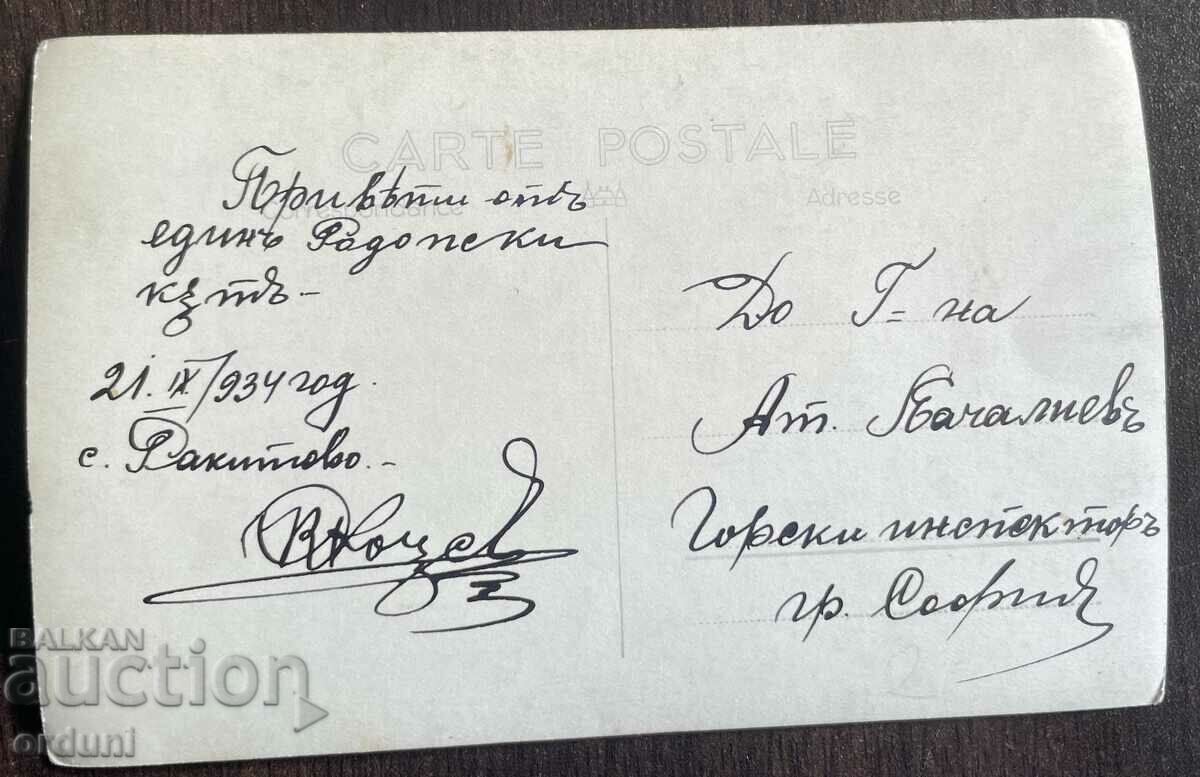 CARTE POSTALE
Correspondance
Adresse
Привѣти отъ
единъ Родопски
кѫтъ -
21. IX/934 год.
с. Ракитово. -
До Г= на
Ат. Пачалиевъ
Горски инспекторъ
гр. София
2
BALKAN
auction
orduni